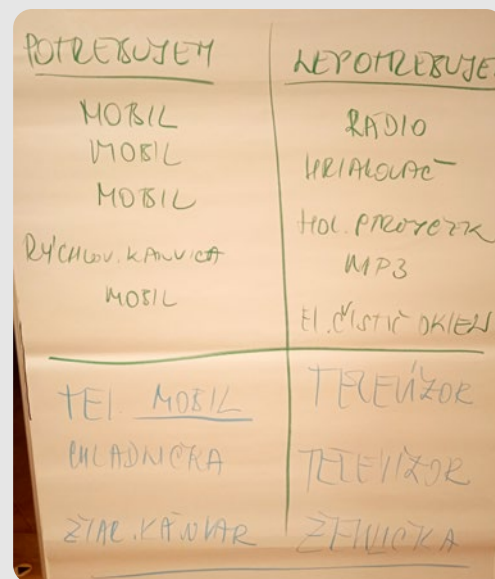 POTREBUJEM
MOBIL
MOBIL
MOBIL
RÝCHLOV. KANVICA
MOBIL
TEL. MOBIL
CHLADNIČKA
NEPOTREBUJE
RÁDIO
HRIANKOVAČ
HOL.
MP3
El. ČISTIČ OKIEN
TELEVÍZOR
TELEVÍZOR
ŽEHLIČKA